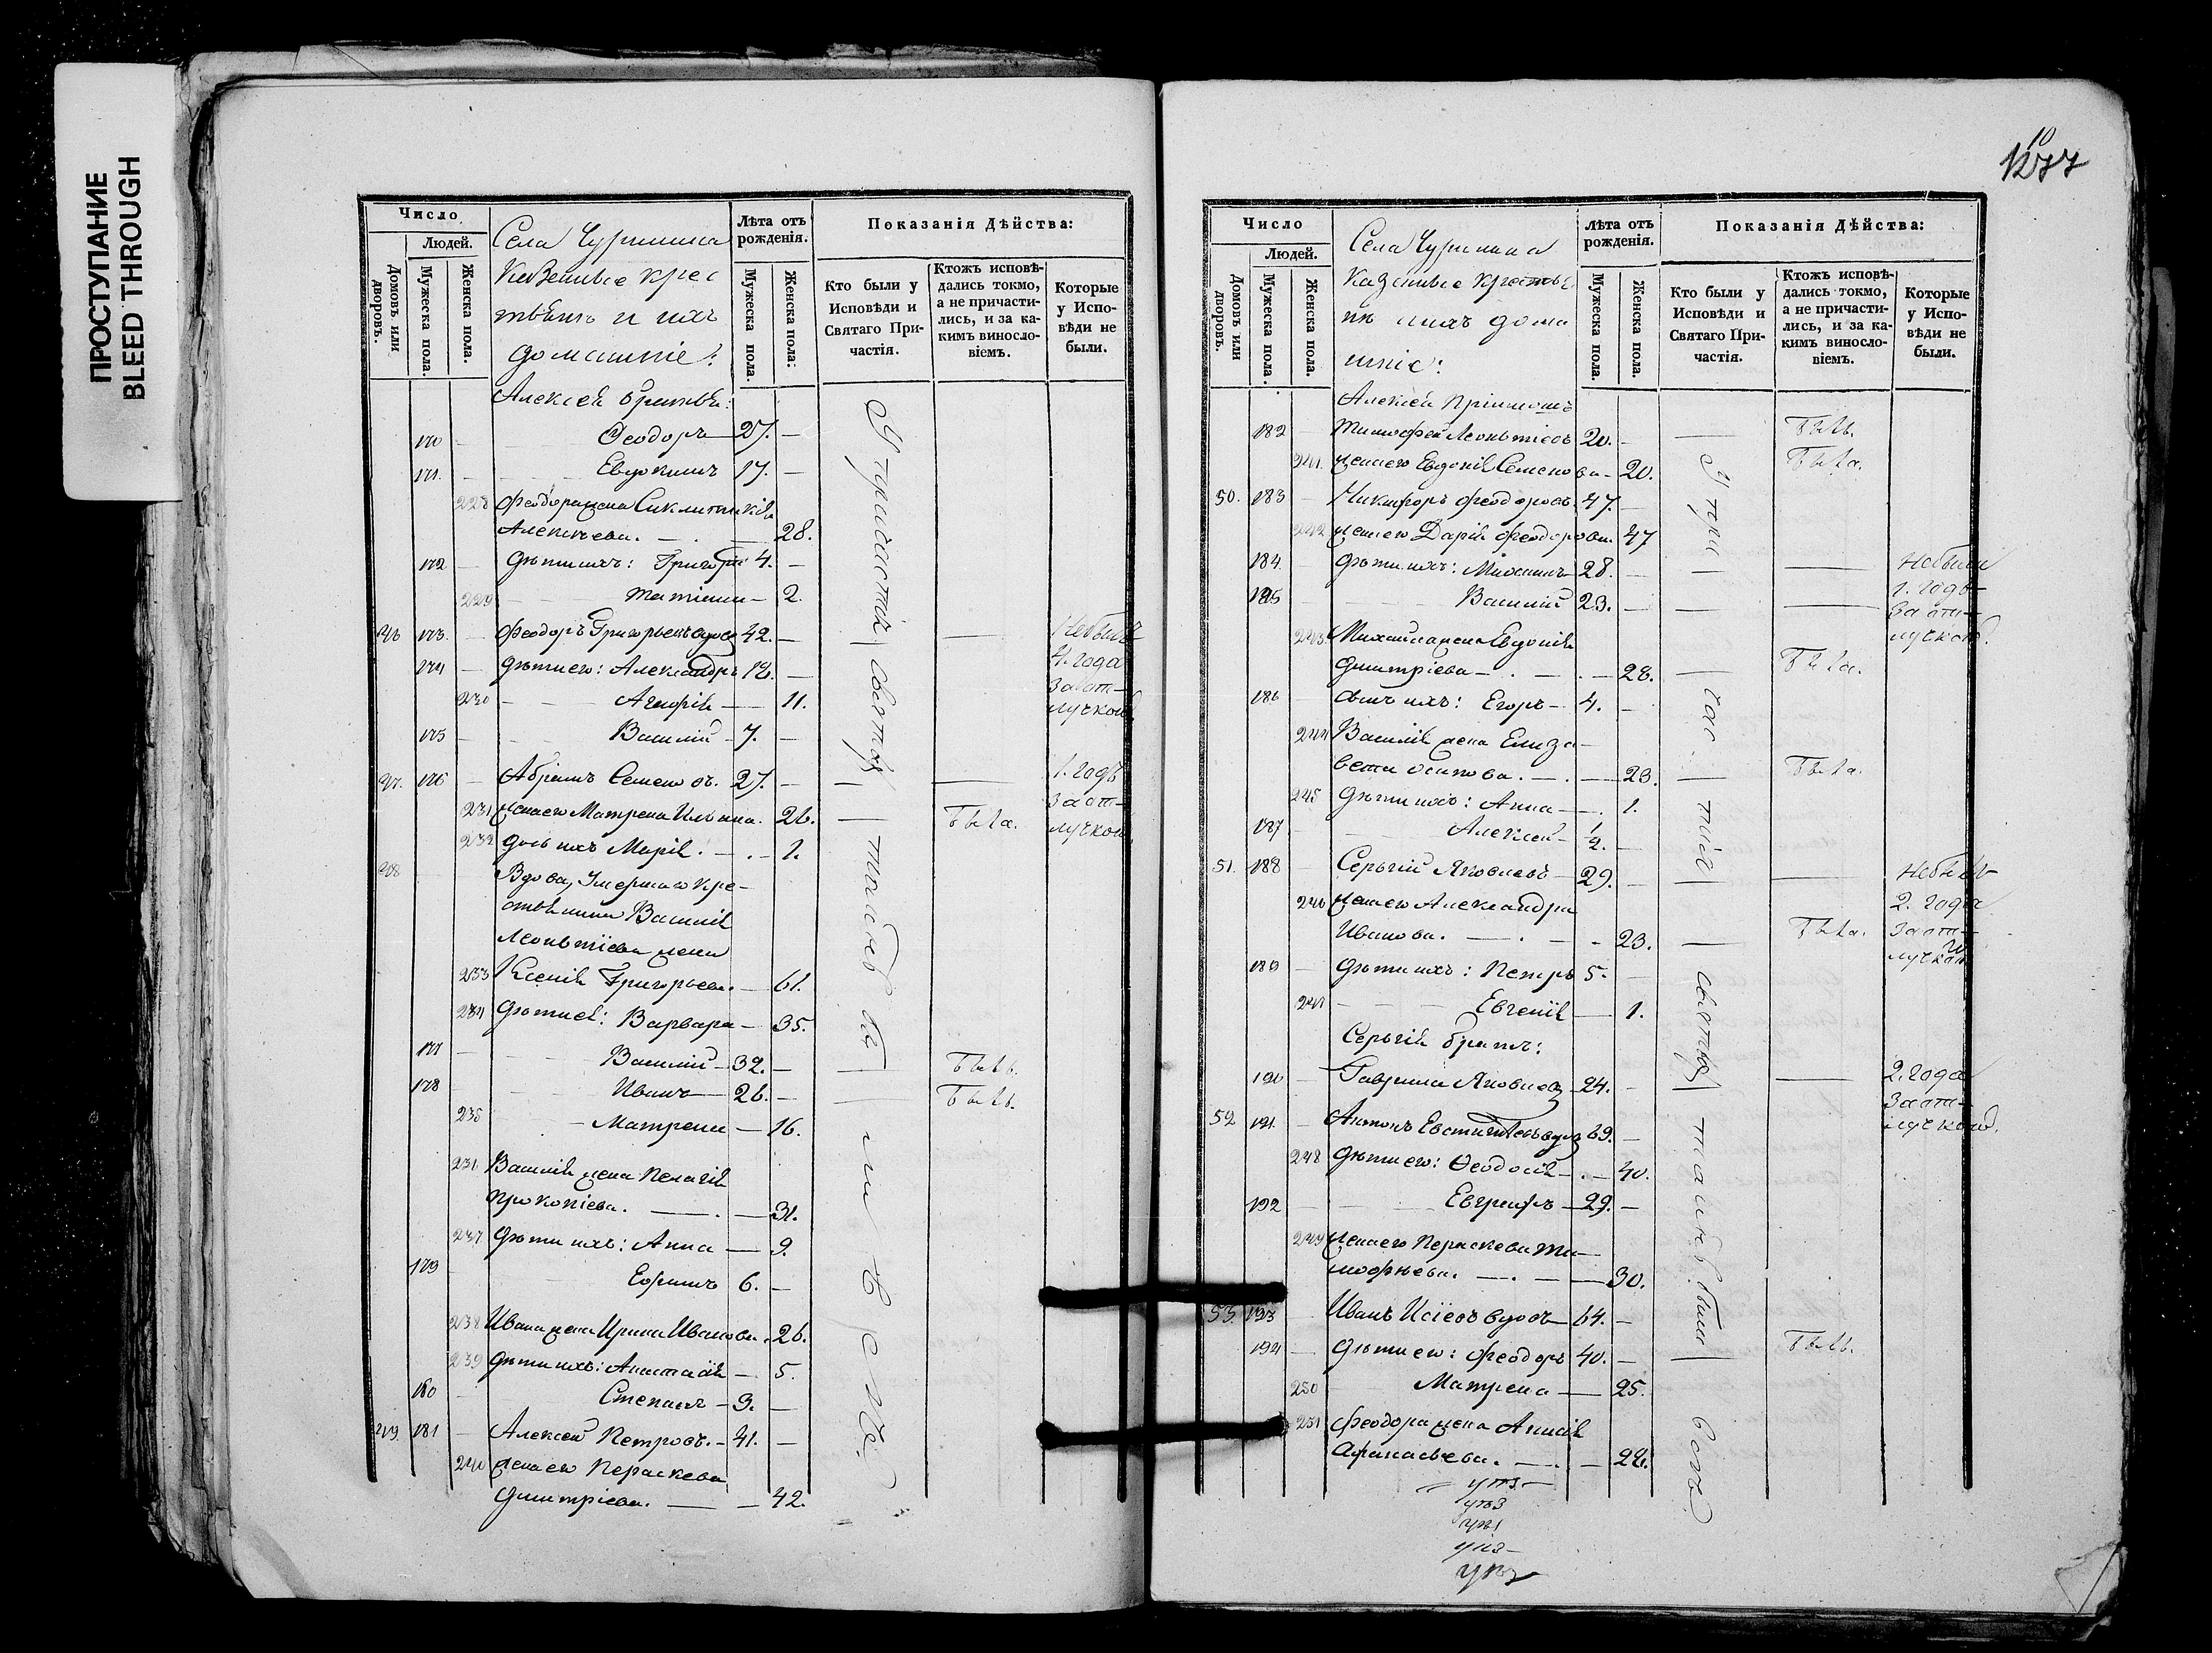 ПРОСТУПАНИЕ
BLEED THROUGH
Число
Людей.
Домовъ или дворовъ.
Мужеска пола.
Женска пола.
Села Чуришина
Казенные крес
тьянѣ и ихъ
домашніе:
Лѣта отъ рожденія.
Мужеска пола.
Женска пола:
Показанія Дѣйства:
Кто были у Исповѣди и Святаго При-частія.
Ктожъ исповѣ-дались токмо, а не причасти-лись, и за ка-кимъ винosло-віемъ.
Которые у Испо-вѣди не были.
Алексѣя братья:
170 Ѳеодоръ 27. —
171. Евдокимъ 17. —
228 Феодора жена
Алексѣева. — 28.
172 дѣти ихъ: Григорій 4. —
229 Татіана — 2.
46 173. Феодоръ Григорьевъ вдовъ 42. — Небылъ
174 дѣти его: Александръ 12. — 4. года
за от-
230 Агафія — 11. лучкою
175 Василій — 7. —
47. 176 Абрамъ Семеновъ. 27. — 1. годъ
за от-
231 жена его Матрена Ильина. 26. — была. лучкою
232 дочь ихъ Марія. — 1.
48 Вдова, Умершаго кре-
стьянина Василія
Леонтіева жена
233 Ксенія Григорьева. — 61.
234 дѣти ея: Варвара — 35.
177 Василій — 32. — былъ.
178 Иванъ — 26. — былъ.
235 — Матрена — 16.
231 Василія жена Пелагія
Прокопіева. — 31.
237 дѣти ихъ: Анна — 9.
179 Ефримъ 6. —
238 Ивана жена Ирина Иванова. 26.
239 дѣти ихъ: Анастасія — 5.
180 Степанъ — 3. —
49. 181 Алексѣй Петровъ. — 41. —
240 жена его Пераскева
Дмитріева. — 42.
У причастія святых таинъ были все
10
1277
Число
Людей.
Домовъ или дворовъ.
Мужеска пола.
Женска пола.
Села Чуришина
Казенные крестья
нѣ и ихъ дома
шніе:
Лѣта отъ рожденія.
Мужеска пола.
Женска пола.
Показанія Дѣйства:
Кто были у Исповѣди и Святаго При-частія.
Ктожъ исповѣ-дались токмо, а не причасти-лись, и за ка-кимъ винosло-віемъ.
Которые у Испо-вѣди не были.
Алексѣя пріимышъ
182 Тимофей Леонтіевъ 20. — былъ.
241. жена его Евдокія Семенова — 20. была.
50. 183 Никифоръ Феодоровъ. 47. —
242 жена его Дарія Феодорова. 47
184. дѣти ихъ: Михаилъ 28. — небыли
1. годъ
185 Василій 23. — за от-
лучкою.
243. Михаила жена Евдокія
Дмитріева — 28. была.
186 сынъ ихъ: Егоръ — 4. —
244 Василія жена Елиза-
вета Осипова. — 23. была.
245 дѣти ихъ: Анна — 1.
187 Алексей — 1/2. —
51. 188 Сергій Яковлевъ — 29. — небылъ
246 жена его Александра 2. года
Иванова. — 23. была. за от-
лучкой
189 дѣти ихъ: Петръ 5. —
247 Евгенія — 1.
Сергія братъ:
190 Гаврила Яковлевъ — 24. — 2. года
за от-
лучкою.
52 191. Антонъ Евстигнѣевъ вдовъ 69. —
248 дѣти его: Ѳеодосія — 40.
192 Евграфъ — 29. —
249 жена его Пераскева Ти-
мофѣева. — 30.
53. 193 Иванъ Исіевъ вдовъ — 64. —
194 дѣти его: Феодоръ 40. — былъ.
250 Матрена — 25.
251 Феодора жена Анисія
Афанасьева. — 28.
У причастія святых таинъ были все